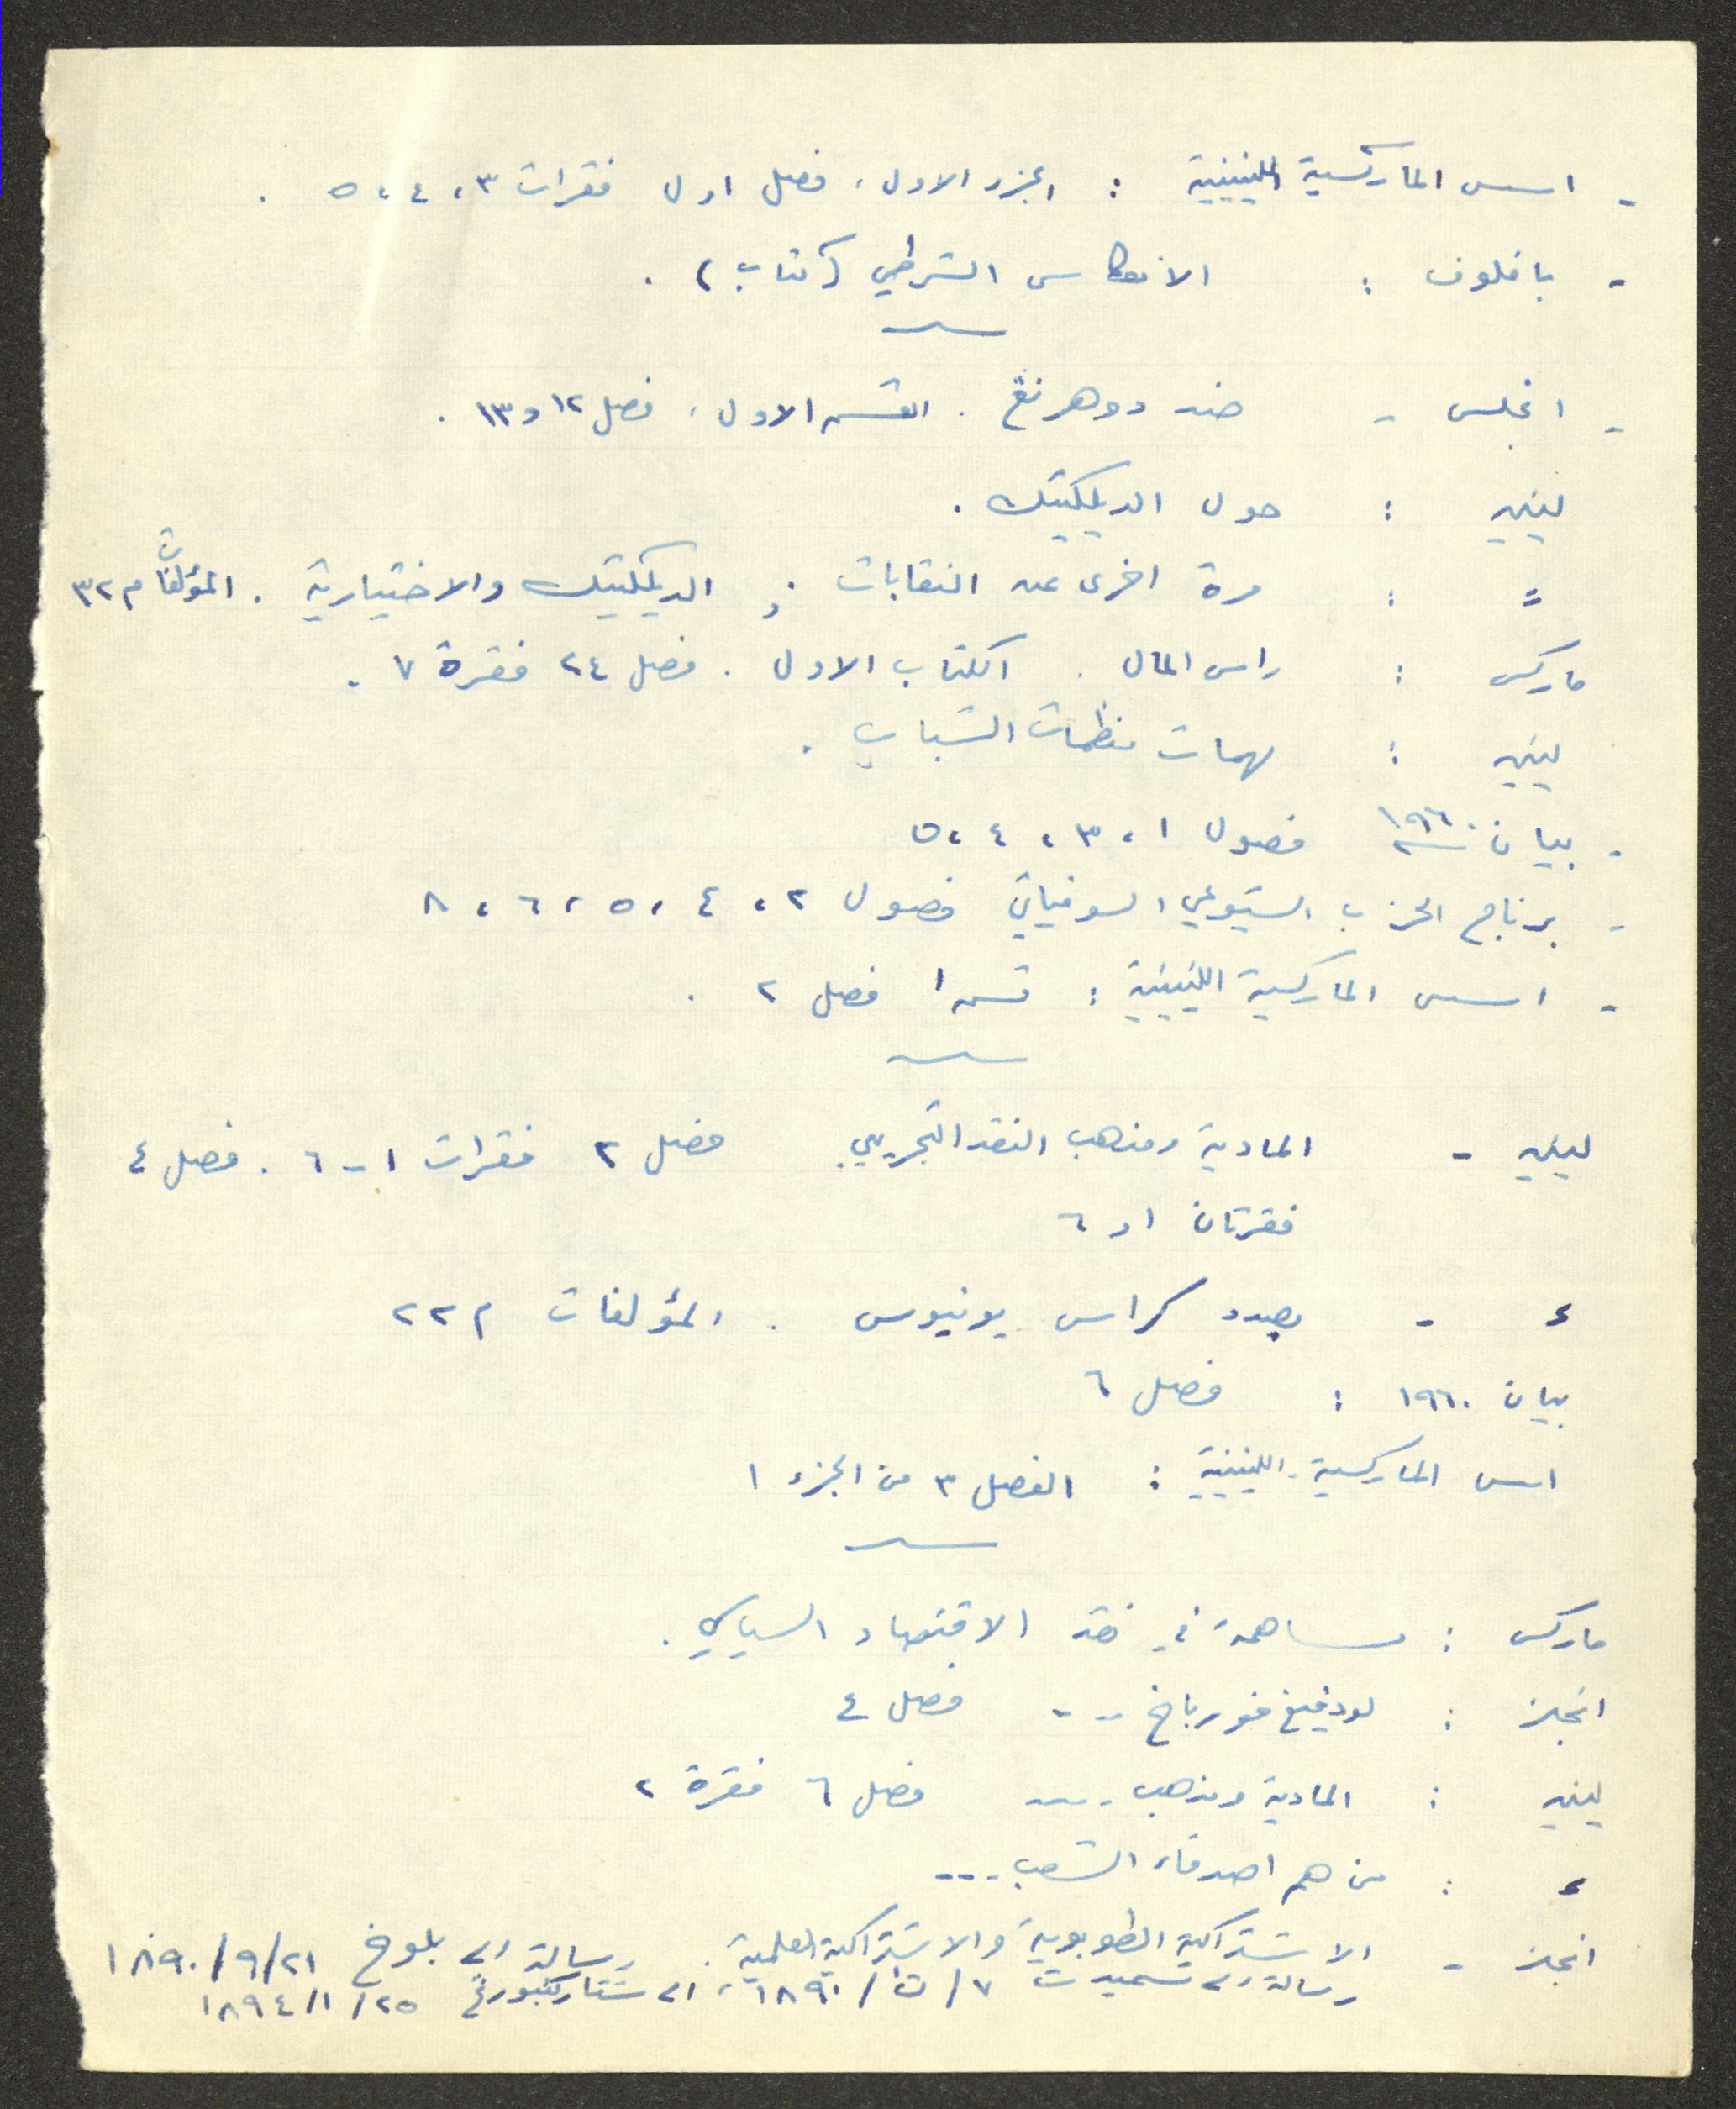 - اسس الماركسية اللينينية : الجزء الاول، فصل اول فقرات ٣، ٤، ٥ .
- بافلوف : الانعكاس الشرطي (كتاب) .
- انجلس - ضد دوهرنغ . القسم الاول، فصل ١٢ و ١٣ .
لينين : حول الديلكتيك .
= : مرة اخرى عن النقابات . الديلكتيك والاختيارية . المؤلفات م ٣٢
ماركس : راس المال . الكتاب الاول . فصل ٢٤ فقرة ٧ .
لينين : مهمات منظمات الشباب .
- بيان ١٩٦٠ فصول ١، ٣، ٤، ٥
- برنامج الحزب الشيوعي السوفياتي فصول ٢، ٤، ٥، ٦، ٨
- اسس الماركسية اللينينية : قسم ١ فصل ٢ .
لينين - المادية ومذهب النقد التجريبي فصل ٢ فقرات ١-٦ . فصل ٤
فقرتان ١ و ٦
= - بصدد كراس يونيوس . المؤلفات م ٢٢
بيان ١٩٦٠ : فصل ٦
اسس الماركسية - اللينينية : الفصل ٣ من الجزء ١
ماركس : مساهمة في نقد الاقتصاد السياسي .
انجلز : لودفيغ فورباخ ... فصل ٤
لينين : المادية ومذهب .... فصل ٦ فقرة ٢
= : من هم اصدقاء الشعب ...
انجلز - الاشتراكية الطوبوية والاشتراكية العلمية . رسالة الى بلوخ ٢١/٩/١٨٩٠
رسالة الى شميدت ٧/ت١/١٨٩٠، الى شتاركنبورغ ٢٥/١/١٨٩٤